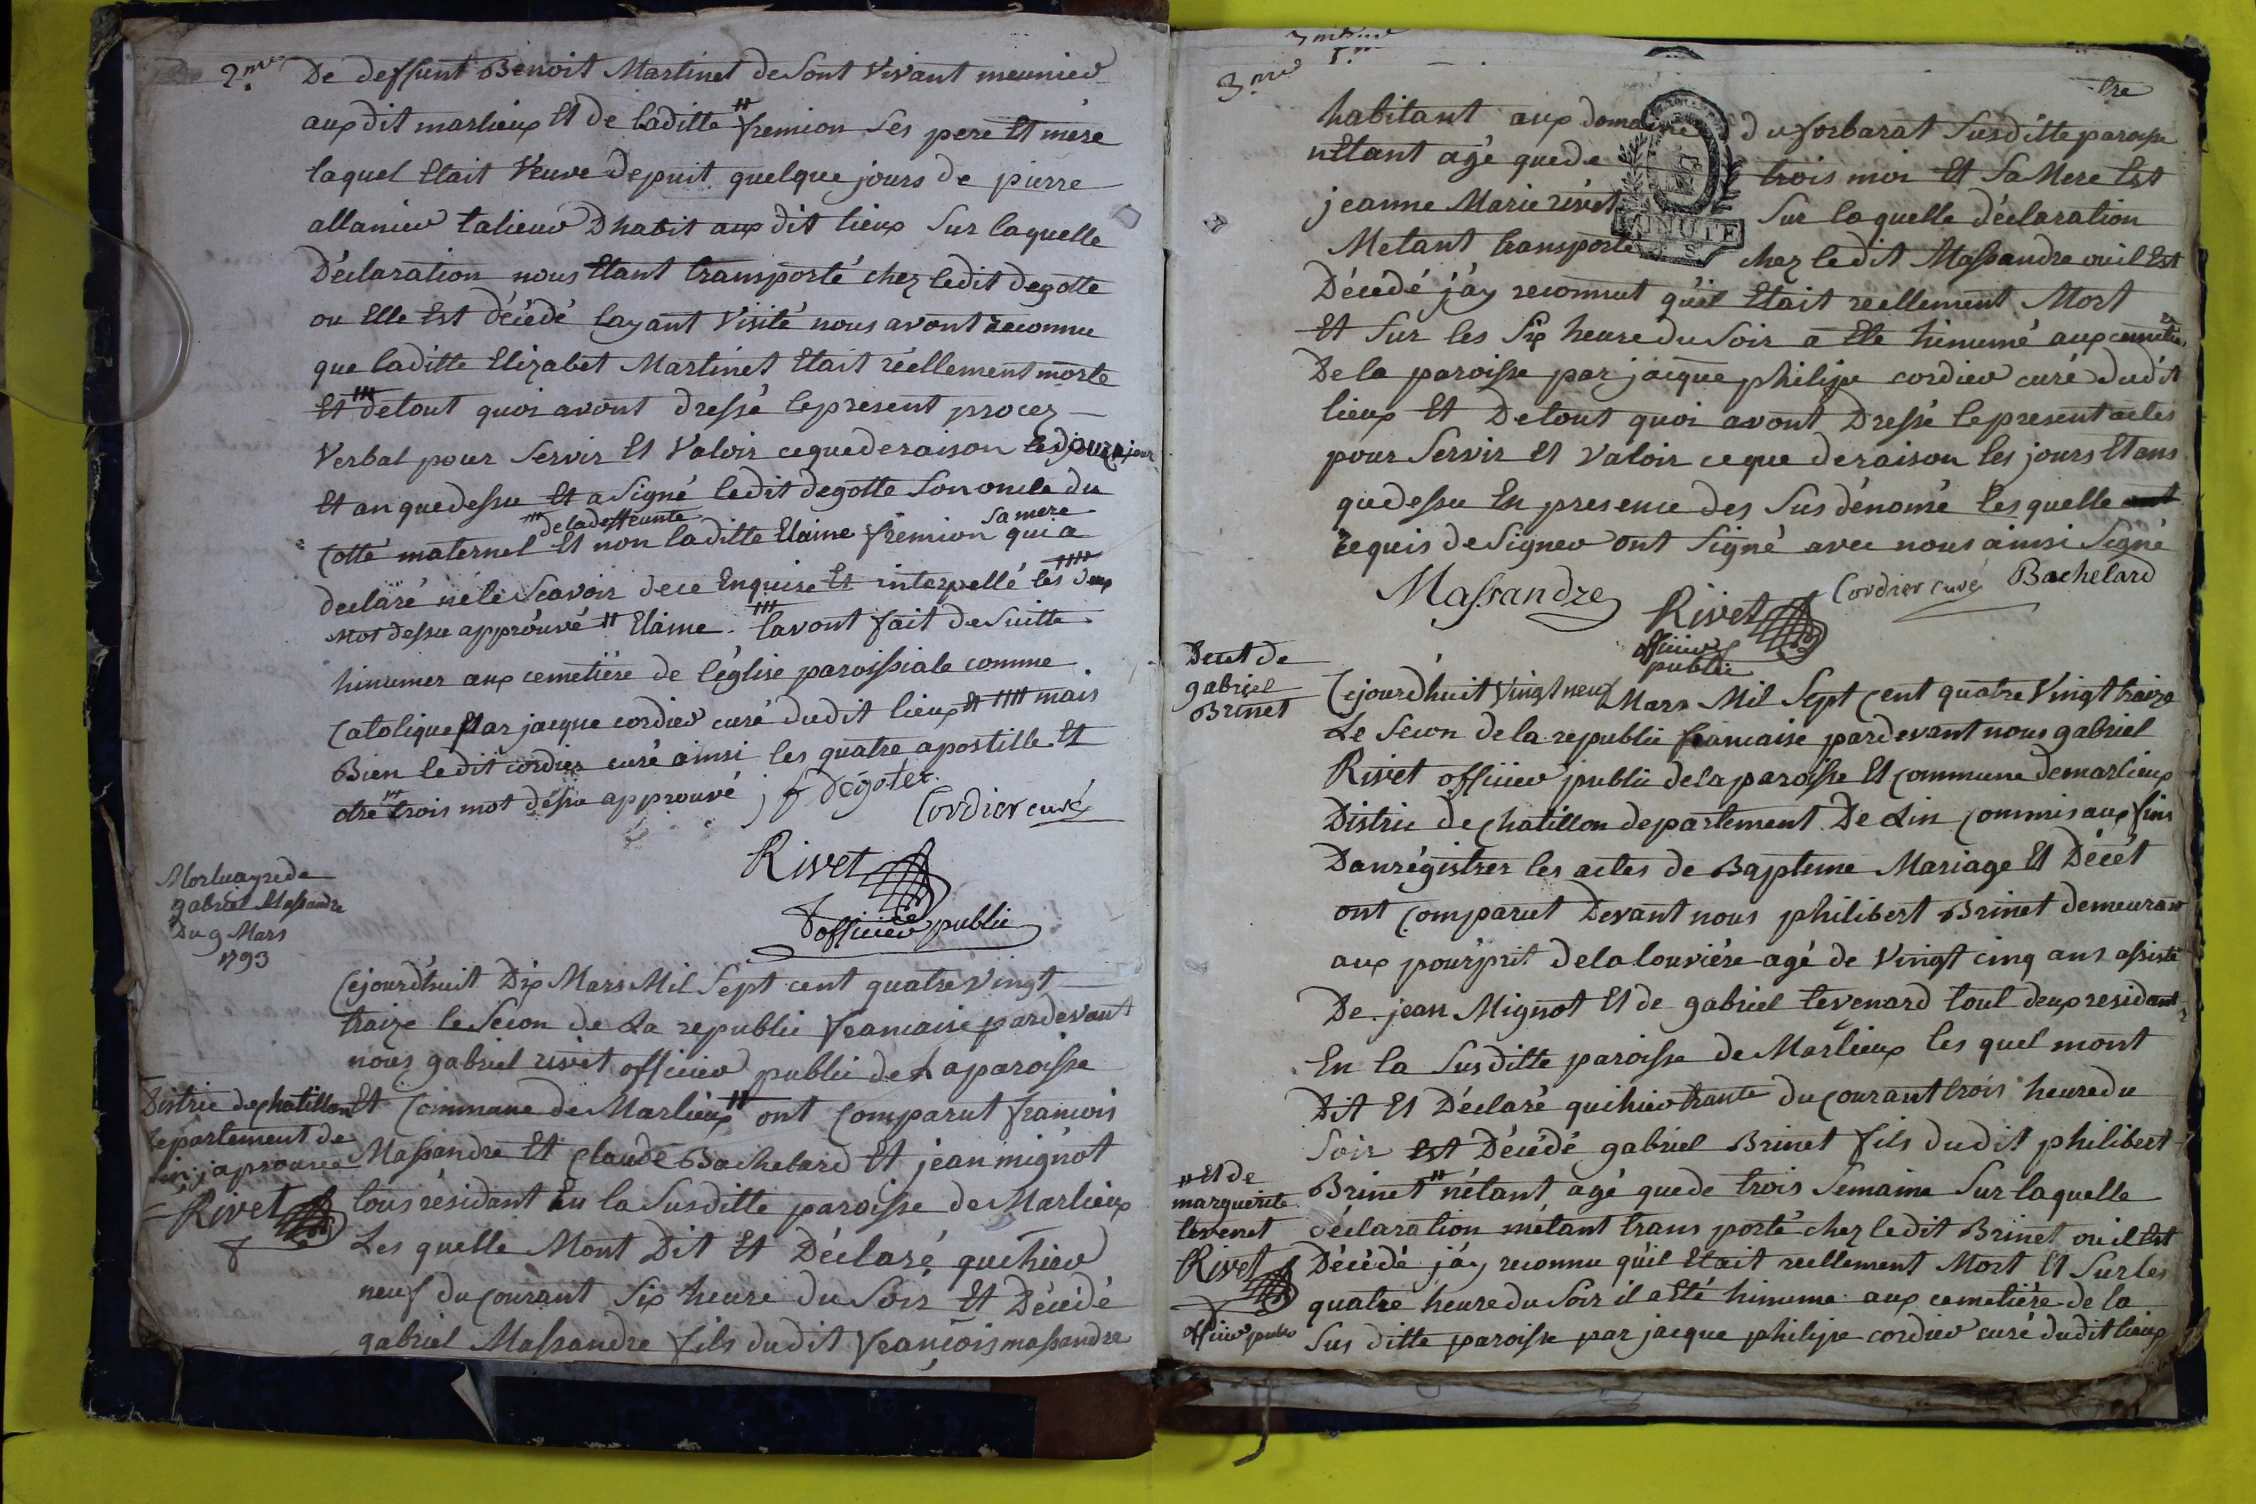 2.me
De deffunt Benoit Martinet de Sont Vivant meunier
aux dit marlieux Et de laditte # fremion Ses pere Et mere
laquel Etait Veuve depuit quelque jours de pierre
allanier talieur Dhabit aux dit lieux Sur laquelle
Déclaration nous Etant transporté chez ledit degotte
ou Elle Est décédé layant Visité nous avont reconnu
que laditte Elizabet Martinet Etait réellement morte
Et ### detout quoi avont dressé le present procez
Verbal pour Servir Et Valoir ceque de raison
Et an quedessu Et a Signé ledit degotte Son oncle du
de ladeffeunte sa mere
Cotté maternel Et non laditte Elaine fremion qui a
declaré nélé Scavoir dece Enquise Et interpellé les deux
Mot dessu apprévé # Elaine. ### lavont fait de Suitte
hinumer aux cemetiére de l'église paroissiale comme
Catolique Par jacque cordier curé dudit lieux Et #### mais
Bien ledit cordier curé ainsi les quatre apostille Et
otre trois mot dessu approuvé j f Dégotet
Cordier curé
Rivet
officier public
Mortuayre de
gabriel Massandre
Du 9 Mars
1793
Cejourdhuit Dix Mars Mil Sept cent quatre vingt
traize le Secon de La republic francaise pardevant
nous gabriel rivet officier public de La paroisse
Distric de chatillon
departement de
lin japrouve
Rivet
Et Commune de Marlieux # ont Comparut francois
Massandre Et Claude Bachelard Et jean mignot
tous résidant En la Susditte paroisse de Marlieux
Les quelle Mont Dit Et Déclaré quehier
neuf du Courant Six heure du Soir Et Décédé
gabriel Massandre fils dudit francois massandre
3.me
habitant aux domaine du forbarat Susditte paroisse
nEtant agé quede trois moi Et Sa Mere Est
jeanne Marie rivet Sur laquelle déclaration
Metant transporté chez ledit Massandre ou il Est
Décédé j'ay reconnut quil Etait réellement Mort
Et Sur les Six heure du Soir a Eté hinumé aux cemetiére
De la paroisse par jacque philipe cordier curé dudit
lieux Et Detout quoi avont Dressé le present actes
pour Servir Et valoir ceque deraison les jours Et ans
quedessu En presence des Sus dénomé lesquelle
requis de Signer ont Signé avec nous ainsi Signé
Massandre Rivet Cordier curé Bachelard
officier
public
Decet de
gabriel
Brinet
Cejourdhuit Vingt neuf Mars Mil Sept Cent quatre Vingt traize
Le Secon de la republic francaise pardevant nous gabriel
Rivet officier public dela paroisse Et Commune demarlieux
Distric de Chatillon departement De Lin Commis aux fins
Danrégistrer les actes de Bapteme Mariage Et Décét
ont Comparut Devant nous philibert Brinet demeurant
aux pourprit dela louviére agé de Vingt cinq ans assisté
De jean Mignot Et de gabriel tevenard tout deux residant
En la Susditte paroisse de Marlieux les quel mont
Dit Et Déclaré quehier trante du Courant trois heure du
Soir est Décédé gabriel Brinet fils dudit philibert
# Et de
marguerite
tevenet
Rivet
officier public
Brinet # nétant agé quede trois Semaine Sur laquelle
déclaration métant trans porté chez ledit Brinet ou il Est
Décédé j'ay reconnu qu'il Etait reellement Mort Et Sur les
quatre heure du Soir il a Eté hinumé aux cemetiére de la
Sus ditte paroisse par jacque philipe cordier curé dudit lieux